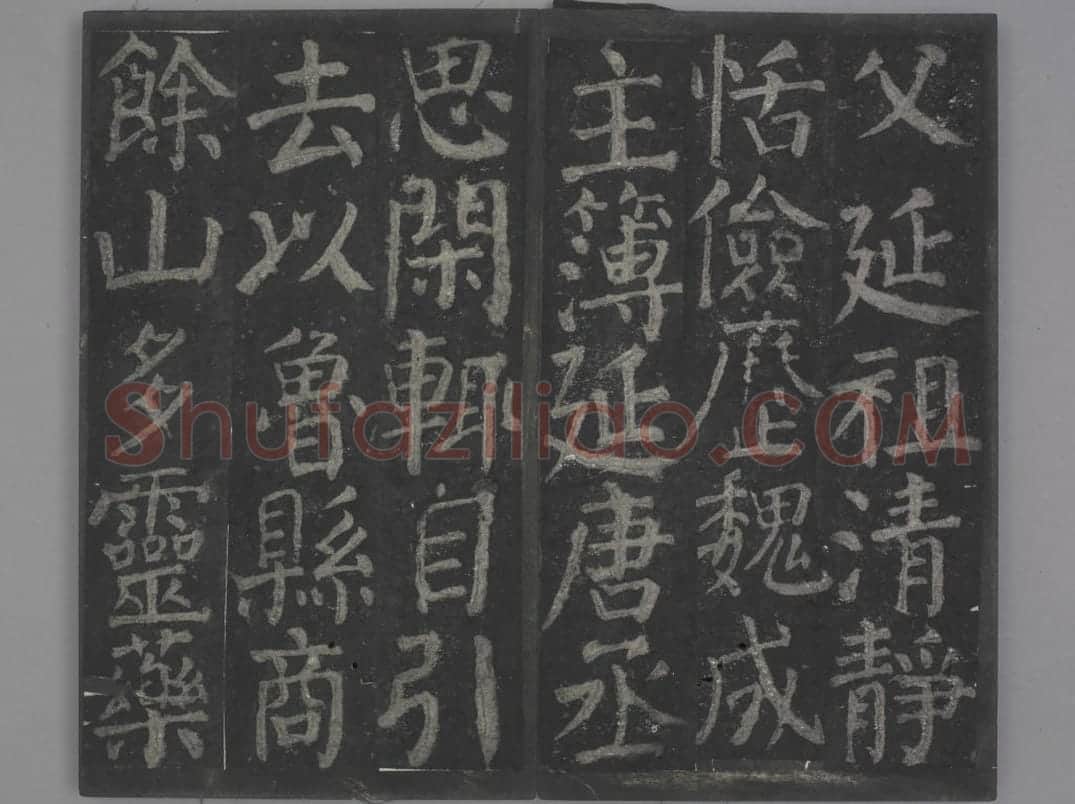 父延祖清靜
恬儉歷魏成
主簿延唐丞
思閑輒自引
去以魯縣商
餘山多靈藥
Shufaziliao.COM